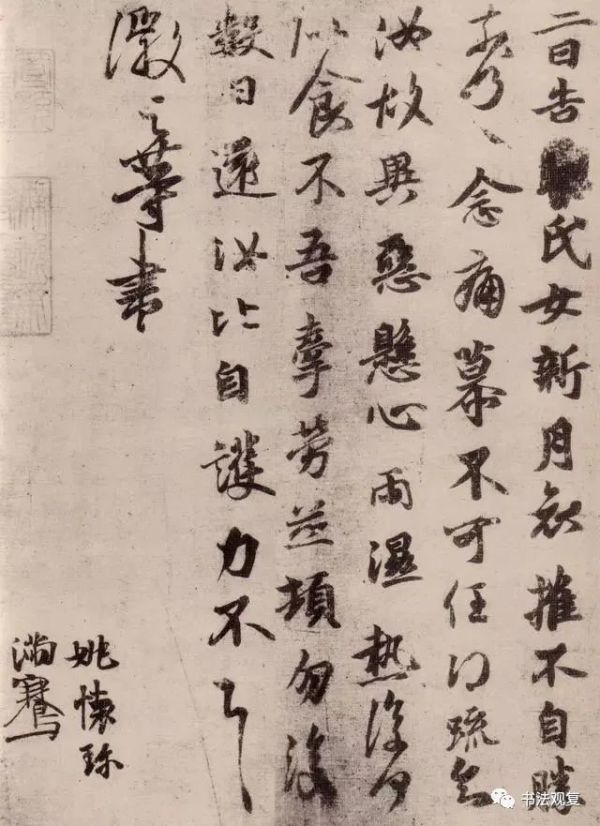 二日告氏女新月哀摧不自勝
奈何〻念痛慕不可任得疏知
汝故異惡懸心雨濕熱復何
似食不吾牽勞並頓勿復
數日還汝比自護力不
徽之等書
姚懷珍
滿騫
书法观复